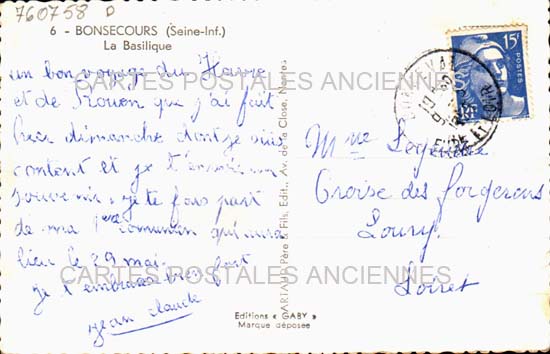 760758 D
6 - BONSECOURS (Seine-Inf.)
La Basilique
un bon voyage du Havre
et de Rouen que j'ai fait
hier dimanche dont je suis
content et je t'envoie un
souvenir, je te fais part
de ma 1ère communion qui aura
lieu le 29 mai.
je t'embrasse bien fort
Jean Claude
ARTAUD Père & Fils, Édit., Av. de la Close, Nantes
Editions « GABY »
Marque déposée
15F
POSTES
EURE ET LOIR
Mme
Croise des Forgerons
Loury
Loiret
CARTES POSTALES ANCIENNES
CARTES POSTALES ANCIENNES